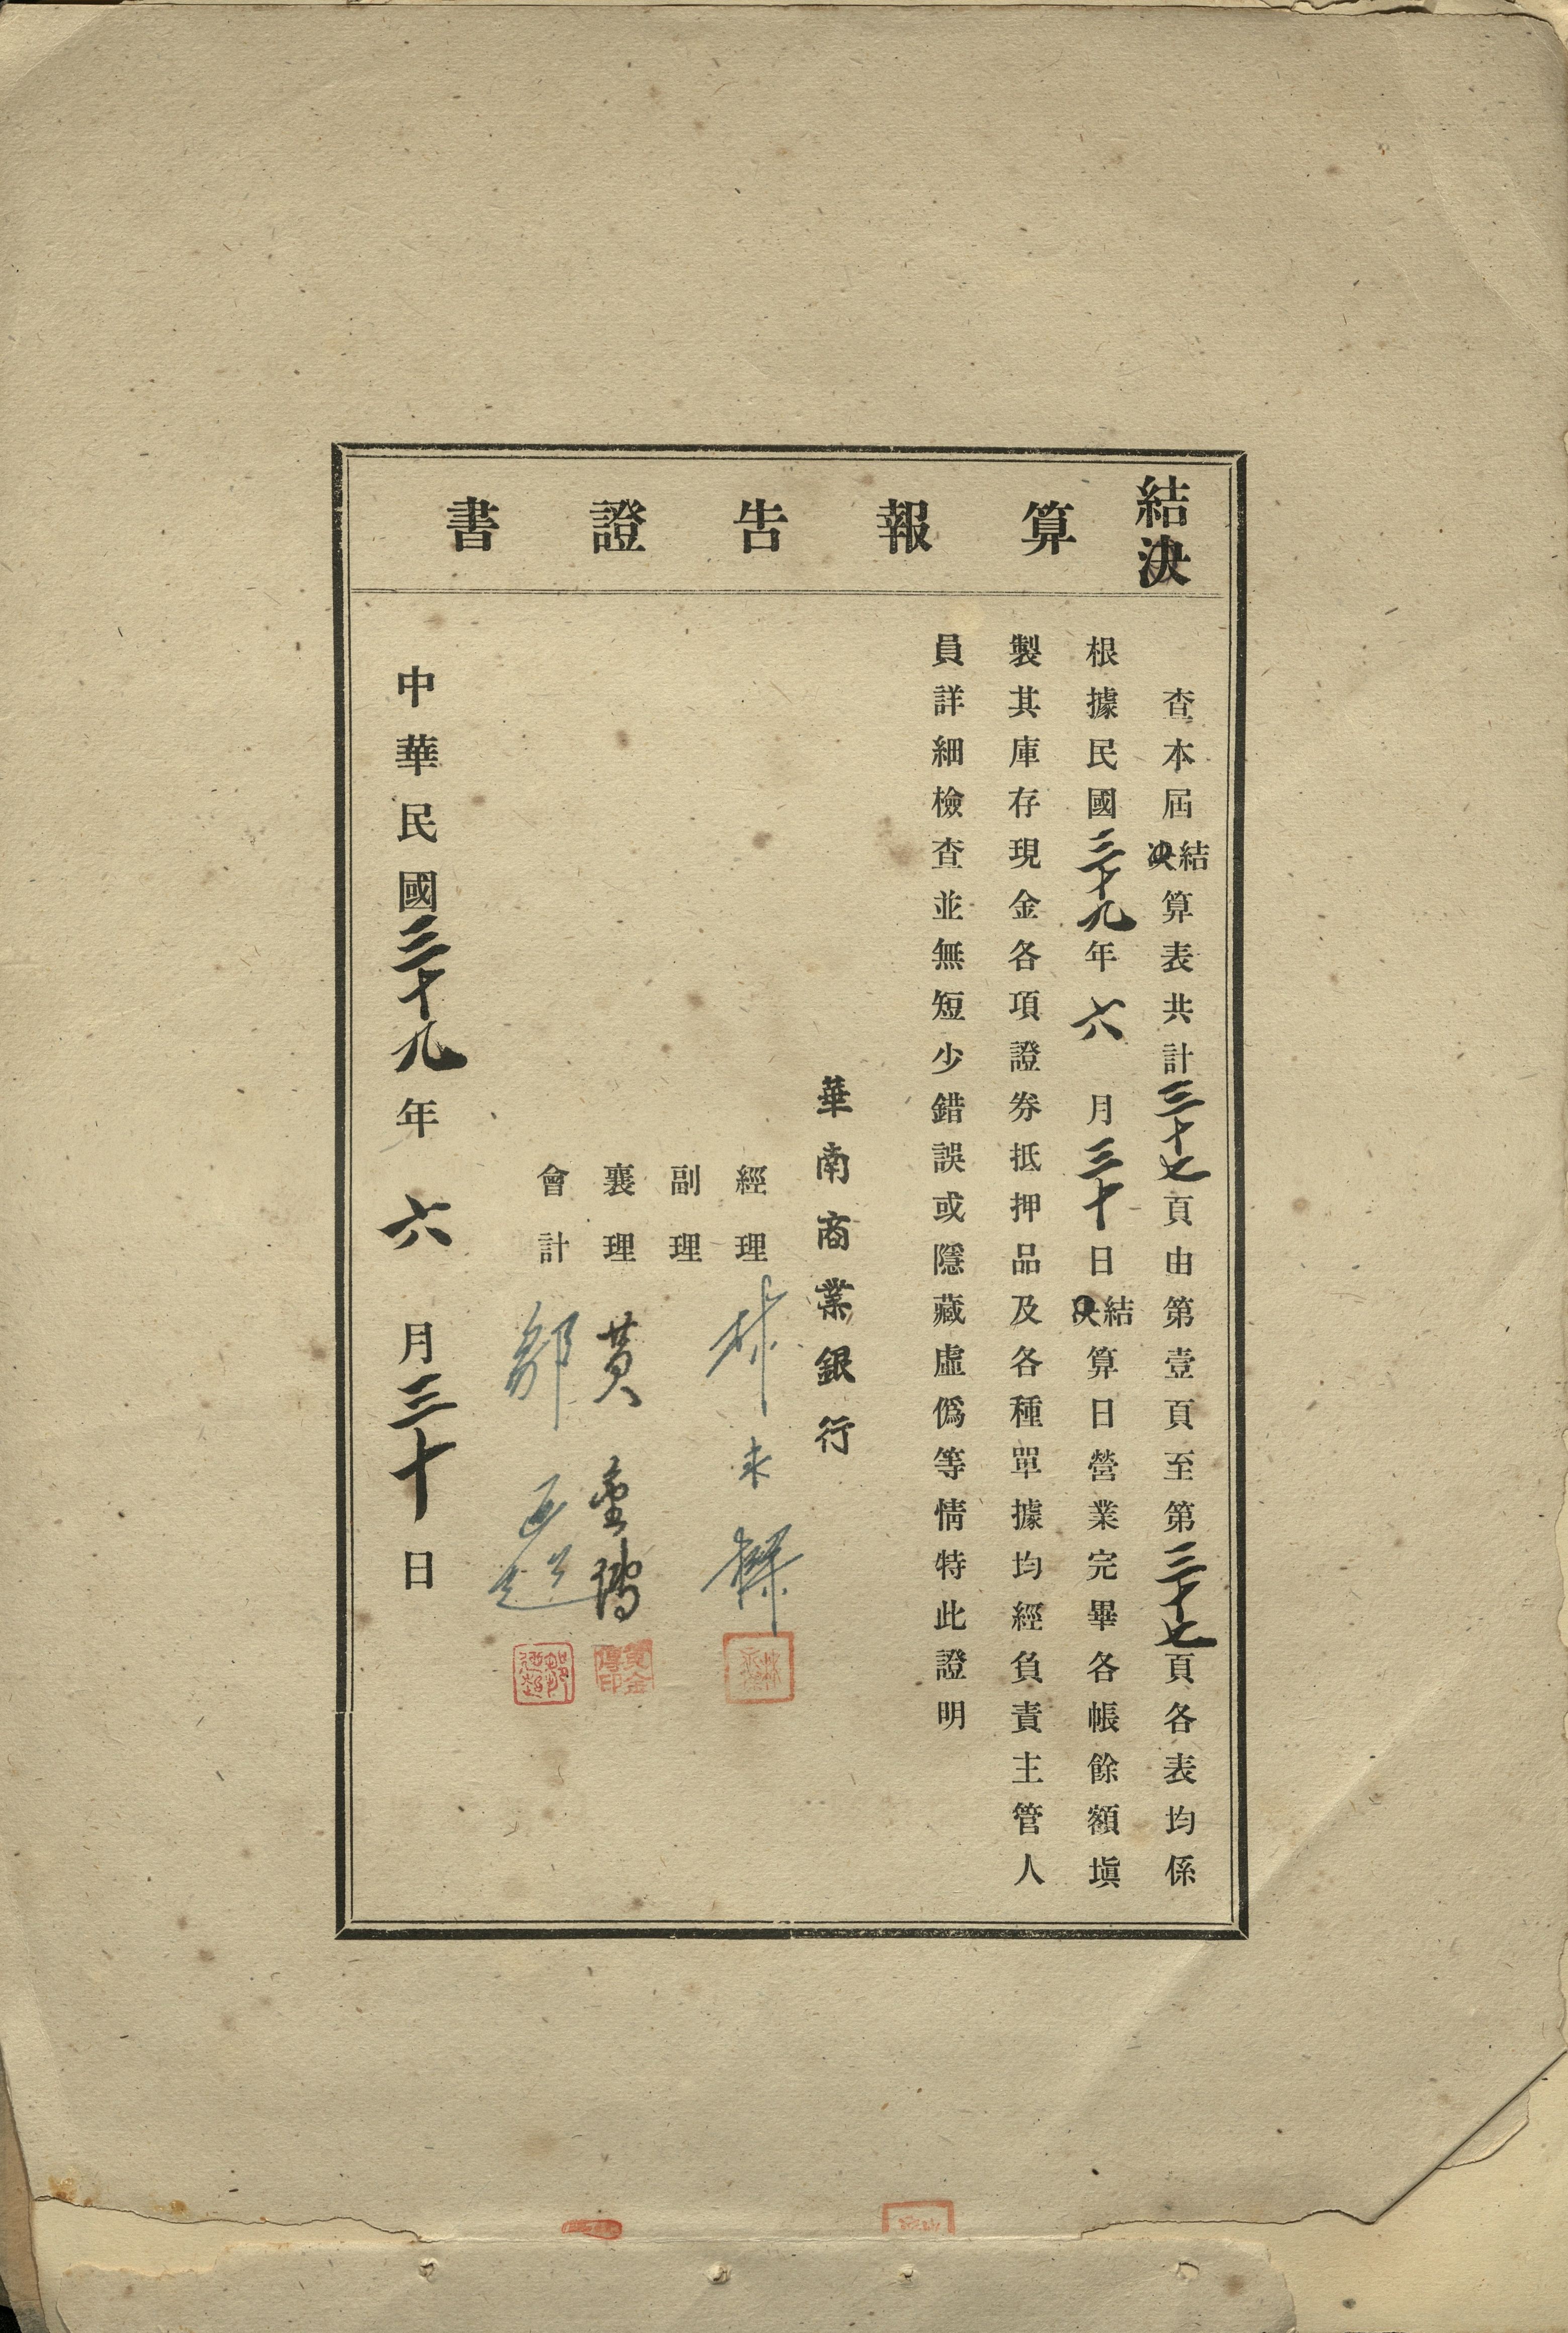 結決算報告證書
查本屆結決算表共計三十七頁由第壹頁至第三十七頁各表均係
根據民國三十九年六月三十日結決算日營業完畢各帳餘額塡
製其庫存現金各項證券抵押品及各種單據均經負責主管人
員詳細檢查並無短少錯誤或隱藏虛僞等情特此證明
華南商業銀行
經理 林永
副理
襄理 黃金
會計 鄒
黃金傳印
中華民國三十九年六月三十日